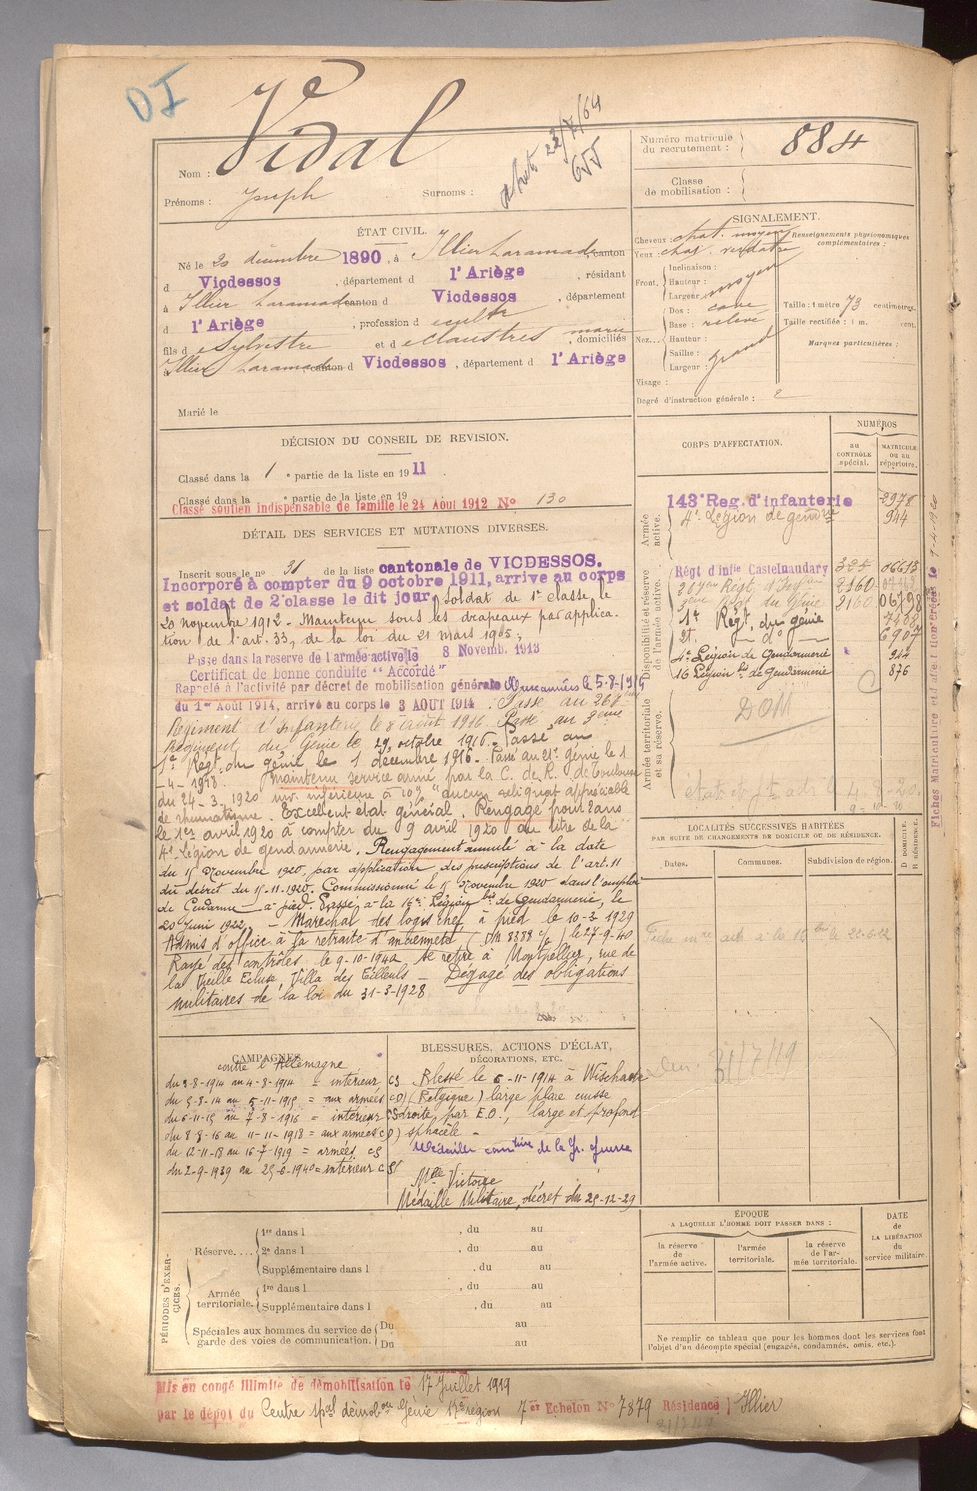 DI
Vidal
Nom :
Prénoms : Joseph
Surnoms :
Numéro matricule du recrutement : 884
Classe de mobilisation :
ÉTAT CIVIL.
Né le 20 décembre 1890, à Illier Laramade, canton
d Vicdessos, département d l'Ariège, résidant
à Illier Laramade canton d Vicdessos, département
d l'Ariège, profession d cultr
fils d e Sylvestre et d e Claustres marie, domiciliés
à Illier Laramade canton d Vicdessos, département d l'Ariège
Marié le
SIGNALEMENT.
Cheveux : chat. moyen
Renseignements physionomiques complémentaires :
Yeux : chat. verdatre
Front. Inclinaison :
Hauteur :
Largeur : moyen
Nez... Dos : cave
Base : relevé
Hauteur :
Saillie :
Largeur : grand
Visage :
Taille : 1 mètre 73 centimètres.
Taille rectifiée : 1 m. cent.
Marques particulières :
Degré d'instruction générale : 2
DÉCISION DU CONSEIL DE REVISION.
Classé dans la 1 e partie de la liste en 1911.
Classé dans la e partie de la liste en 19
Classé soutien indispensable de famille le 24 Aout 1912 No 130
DÉTAIL DES SERVICES ET MUTATIONS DIVERSES.
Inscrit sous le no 31 de la liste cantonale de VICDESSOS.
Incorporé à compter du 9 octobre 1911, arrive au corps
et soldat de 2e classe le dit jour. Soldat de 1e classe le
20 novembre 1912. Maintenu sous les drapeaux par applica-
tion de l'art. 33, de la loi du 21 mars 1905,
Passé dans la réserve de l'armée active le 8 Novemb. 1913
Certificat de bonne conduite "Accordé"
Rappelé à l'activité par décret de mobilisation générale
du 1er Août 1914, arrivé au corps le 3 AOUT 1914. Passé au
Régiment d'Infanterie le 8 août 1916. Passé au 3ème
Régiment du Génie le 29 octobre 1916. Passé au
1er Régt du génie le 1 décembre 1916. Passé au 21e génie le 1
-4-1918. Maintenu service armé par la C. de R. de Toulouse
du 24-3-1920 inv. inférieure à 10% "aucun reliquat appréciable
de rhumatisme. Excellent état général. Rengagé pour 2 ans
le 1er avril 1920 à compter du 9 avril 1920 au titre de la
4e Légion de gendarmerie. Rengagement annulé à la date
du 15 Novembre 1920 par application des prescriptions de l'art. 11
du décret du 15-11-1920. Commissionné le 15 Novembre 1920 dans l'emploi
de Gendarme à pied. Passé à la 16e Légion bis de Gendarmerie, le
20 Juin 1922. - Maréchal des logis chef à pied le 10-3 1929
Admis d'office à la retraite d'ancienneté (DM 8388 c/) le 27-9-40
Rayé des contrôles le 9-10-1940. se retire à Montpellier, rue de
la Vieille Ecluse, Villa des Tilleuls - Dégagé des obligations
militaires de la loi du 31-3-1928
CORPS D'AFFECTATION.
NUMÉROS
au contrôle spécial.
MATRICULE ou au répertoire.
Armée active.
143e Reg. d'infanterie 2978
4e Légion de gendrie 944
Disponibilité et réserve de l'armée active.
Régt d'infie Castelnaudary
3ème Régt du Génie 2160
1er Régt du génie
21e do
4e Légion de Gendarmerie 944
16 Légion bis de Gendarmerie 876
Armée territoriale et sa réserve.
DOM
Fiches Matriculaire et d
LOCALITÉS SUCCESSIVES HABITÉES
PAR SUITE DE CHANGEMENTS DE DOMICILE OU DE RÉSIDENCE.
Dates.
Communes.
Subdivision de région.
D DOMICILE. R RÉSIDENCE.
31/7/19
CAMPAGNES
contre l'Allemagne
du 3-8-1914 au 4-8-1914 = intérieur CS
du 5-8-14 au 5-11-1915 = aux armées CD
du 6-11-15 au 7-8-1916 = intérieur CS
du 8-8-16 au 11-11-1918 = aux armées CD
du 12-11-18 au 16-7-1919 = armées CS
du 2-9-1939 au 25-6-1940 = intérieur CS
BLESSURES, ACTIONS D'ÉCLAT,
DÉCORATIONS, ETC.
Blessé le 5-11-1914 à Wischaete
(Belgique) large plaie cuisse
droite, par E.O., large et profond
sphacèle -
Médaille comtive de la Gr. Guerre
Mlle Victoire
Médaille Militaire, décret du 25-12-29
PÉRIODES D'EXERCICES.
Réserve.... 1re dans l , du au
2e dans l , du au
Supplémentaire dans l , du au
Armée territoriale. 1re dans l , du au
Supplémentaire dans l , du au
Spéciales aux hommes du service de garde des voies de communication. Du au
Du au
ÉPOQUE
A LAQUELLE L'HOMME DOIT PASSER DANS :
la réserve de l'armée active.
l'armée territoriale.
la réserve de l'armée territoriale.
DATE de LA LIBÉRATION du service militaire.
Ne remplir ce tableau que pour les hommes dont les services font
l'objet d'un décompte spécial (engagés, condamnés, omis, etc.).
Mis en congé illimité de démobilisation le 17 Juillet 1919
par le dépôt du Centre spal démobon Génie 17e région 7er Echelon No 7879 Résidence Illier